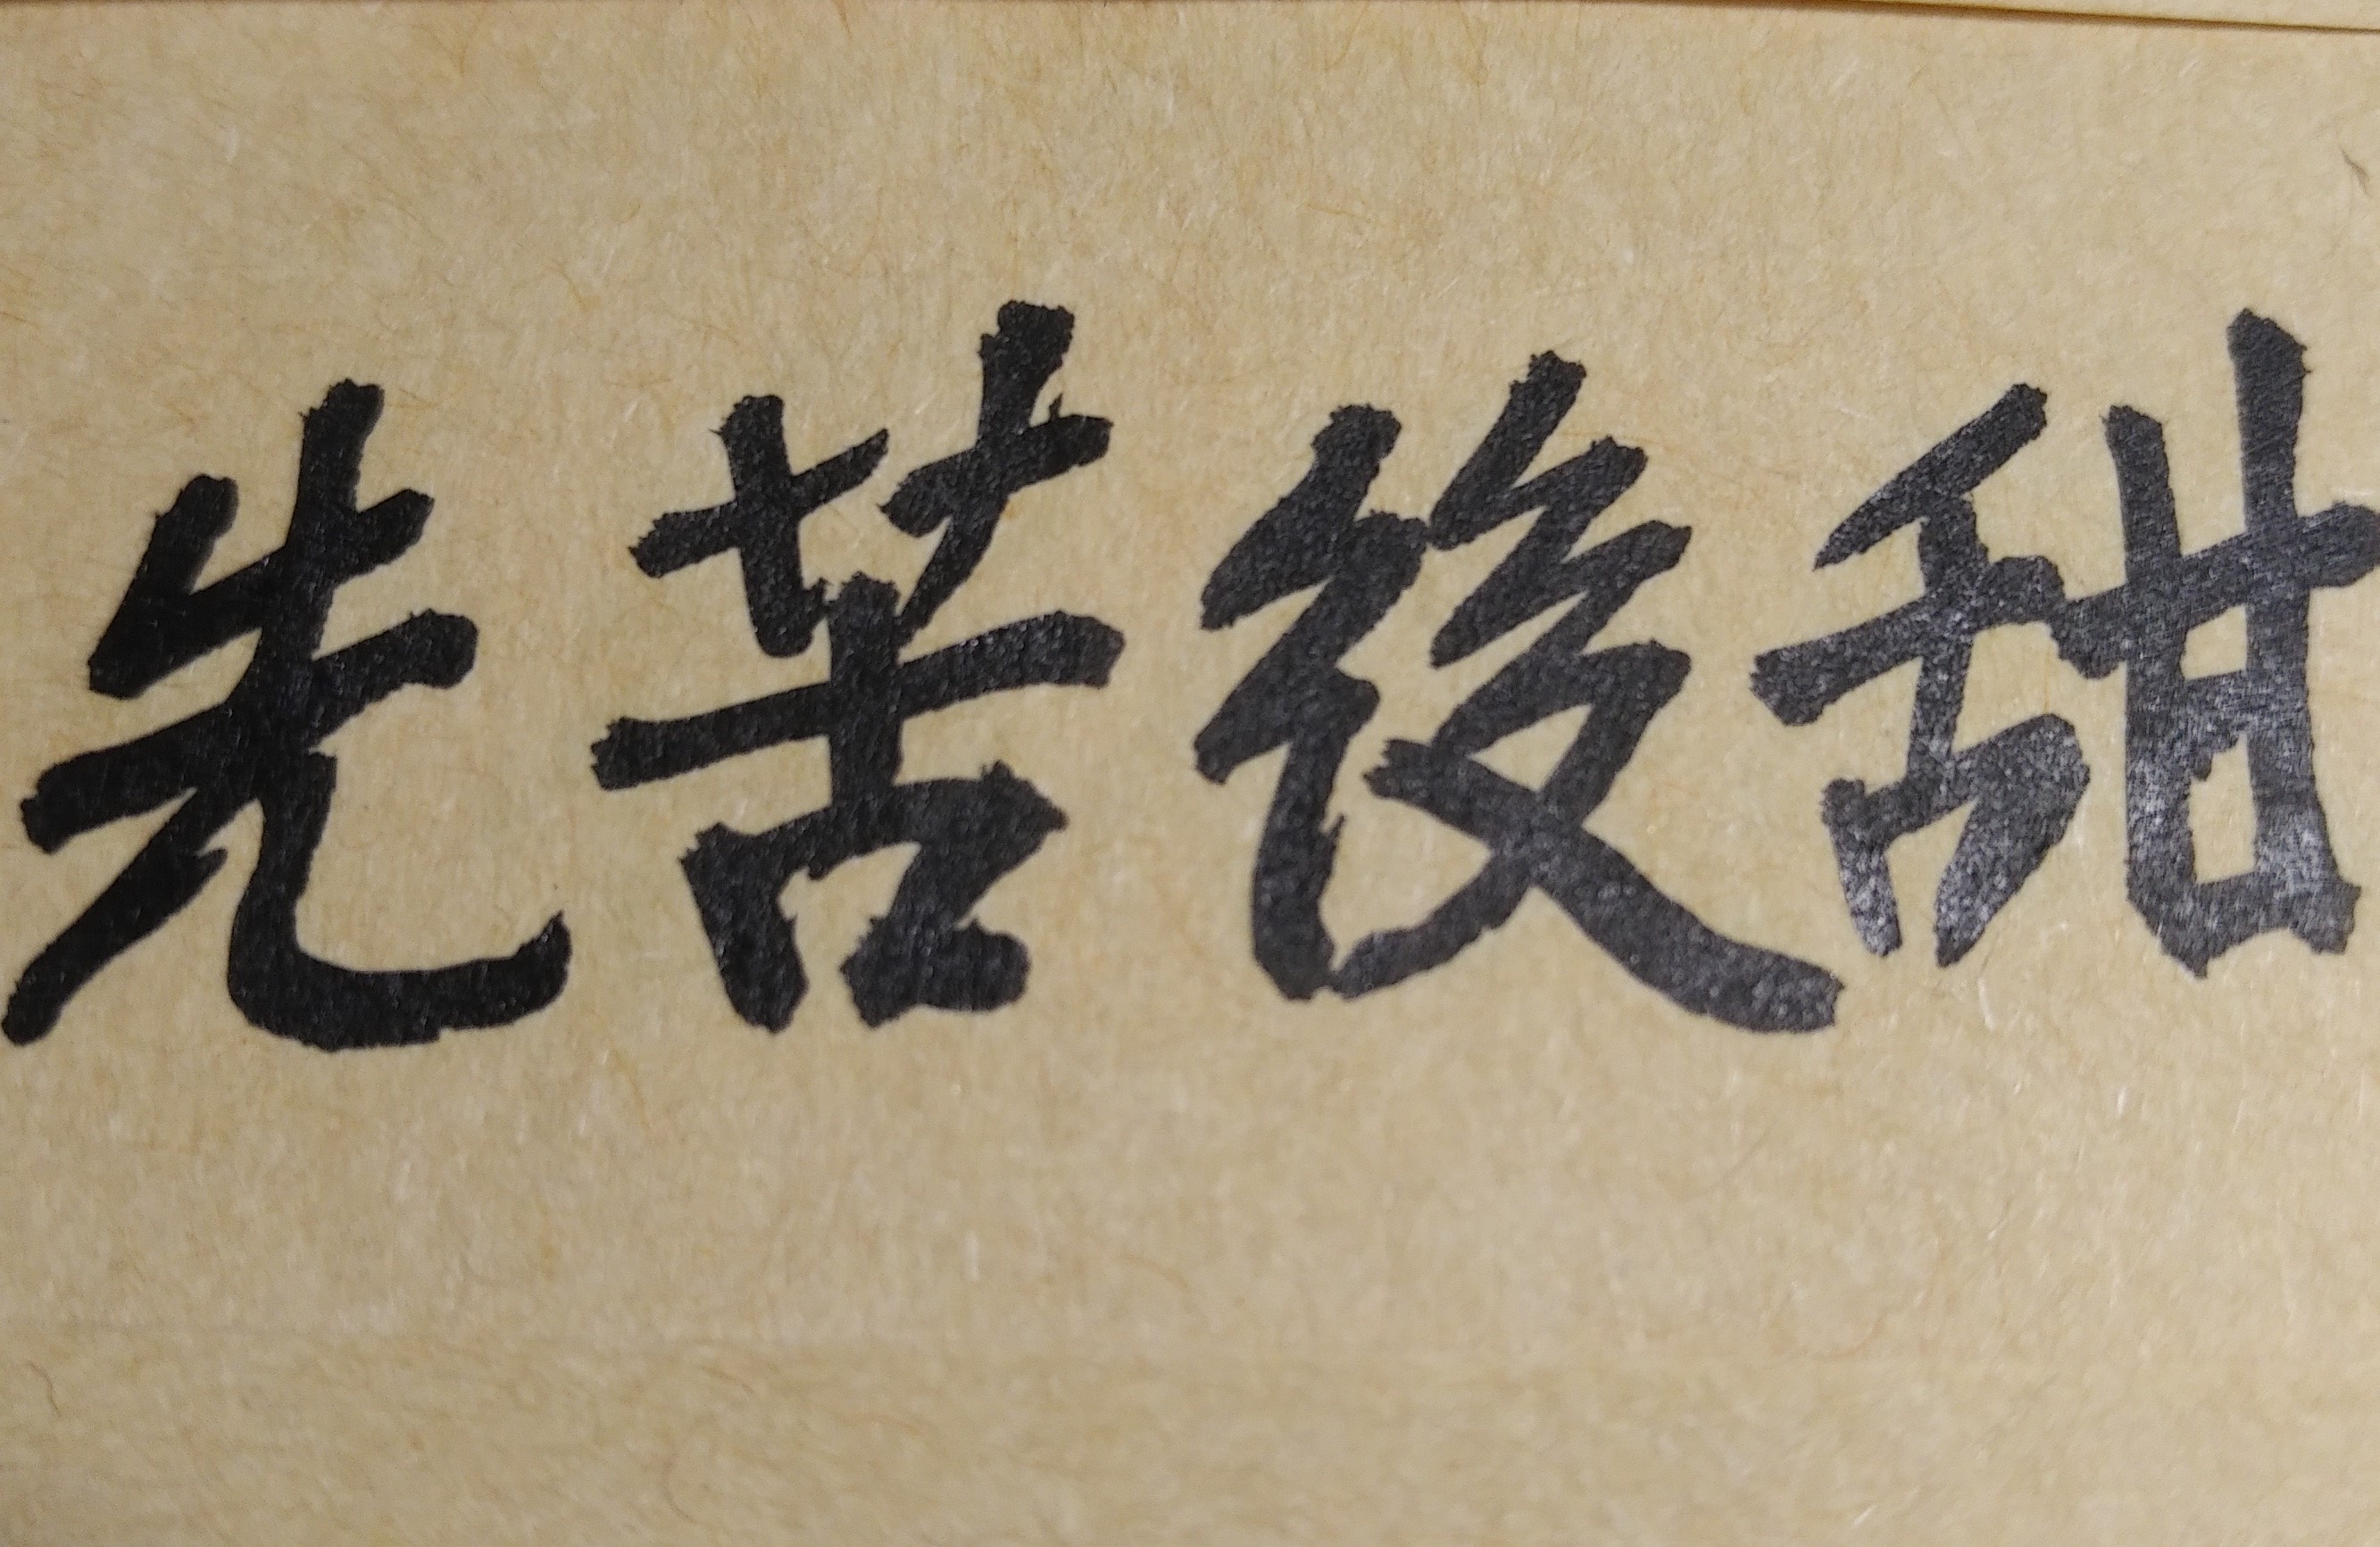 先苦後甜